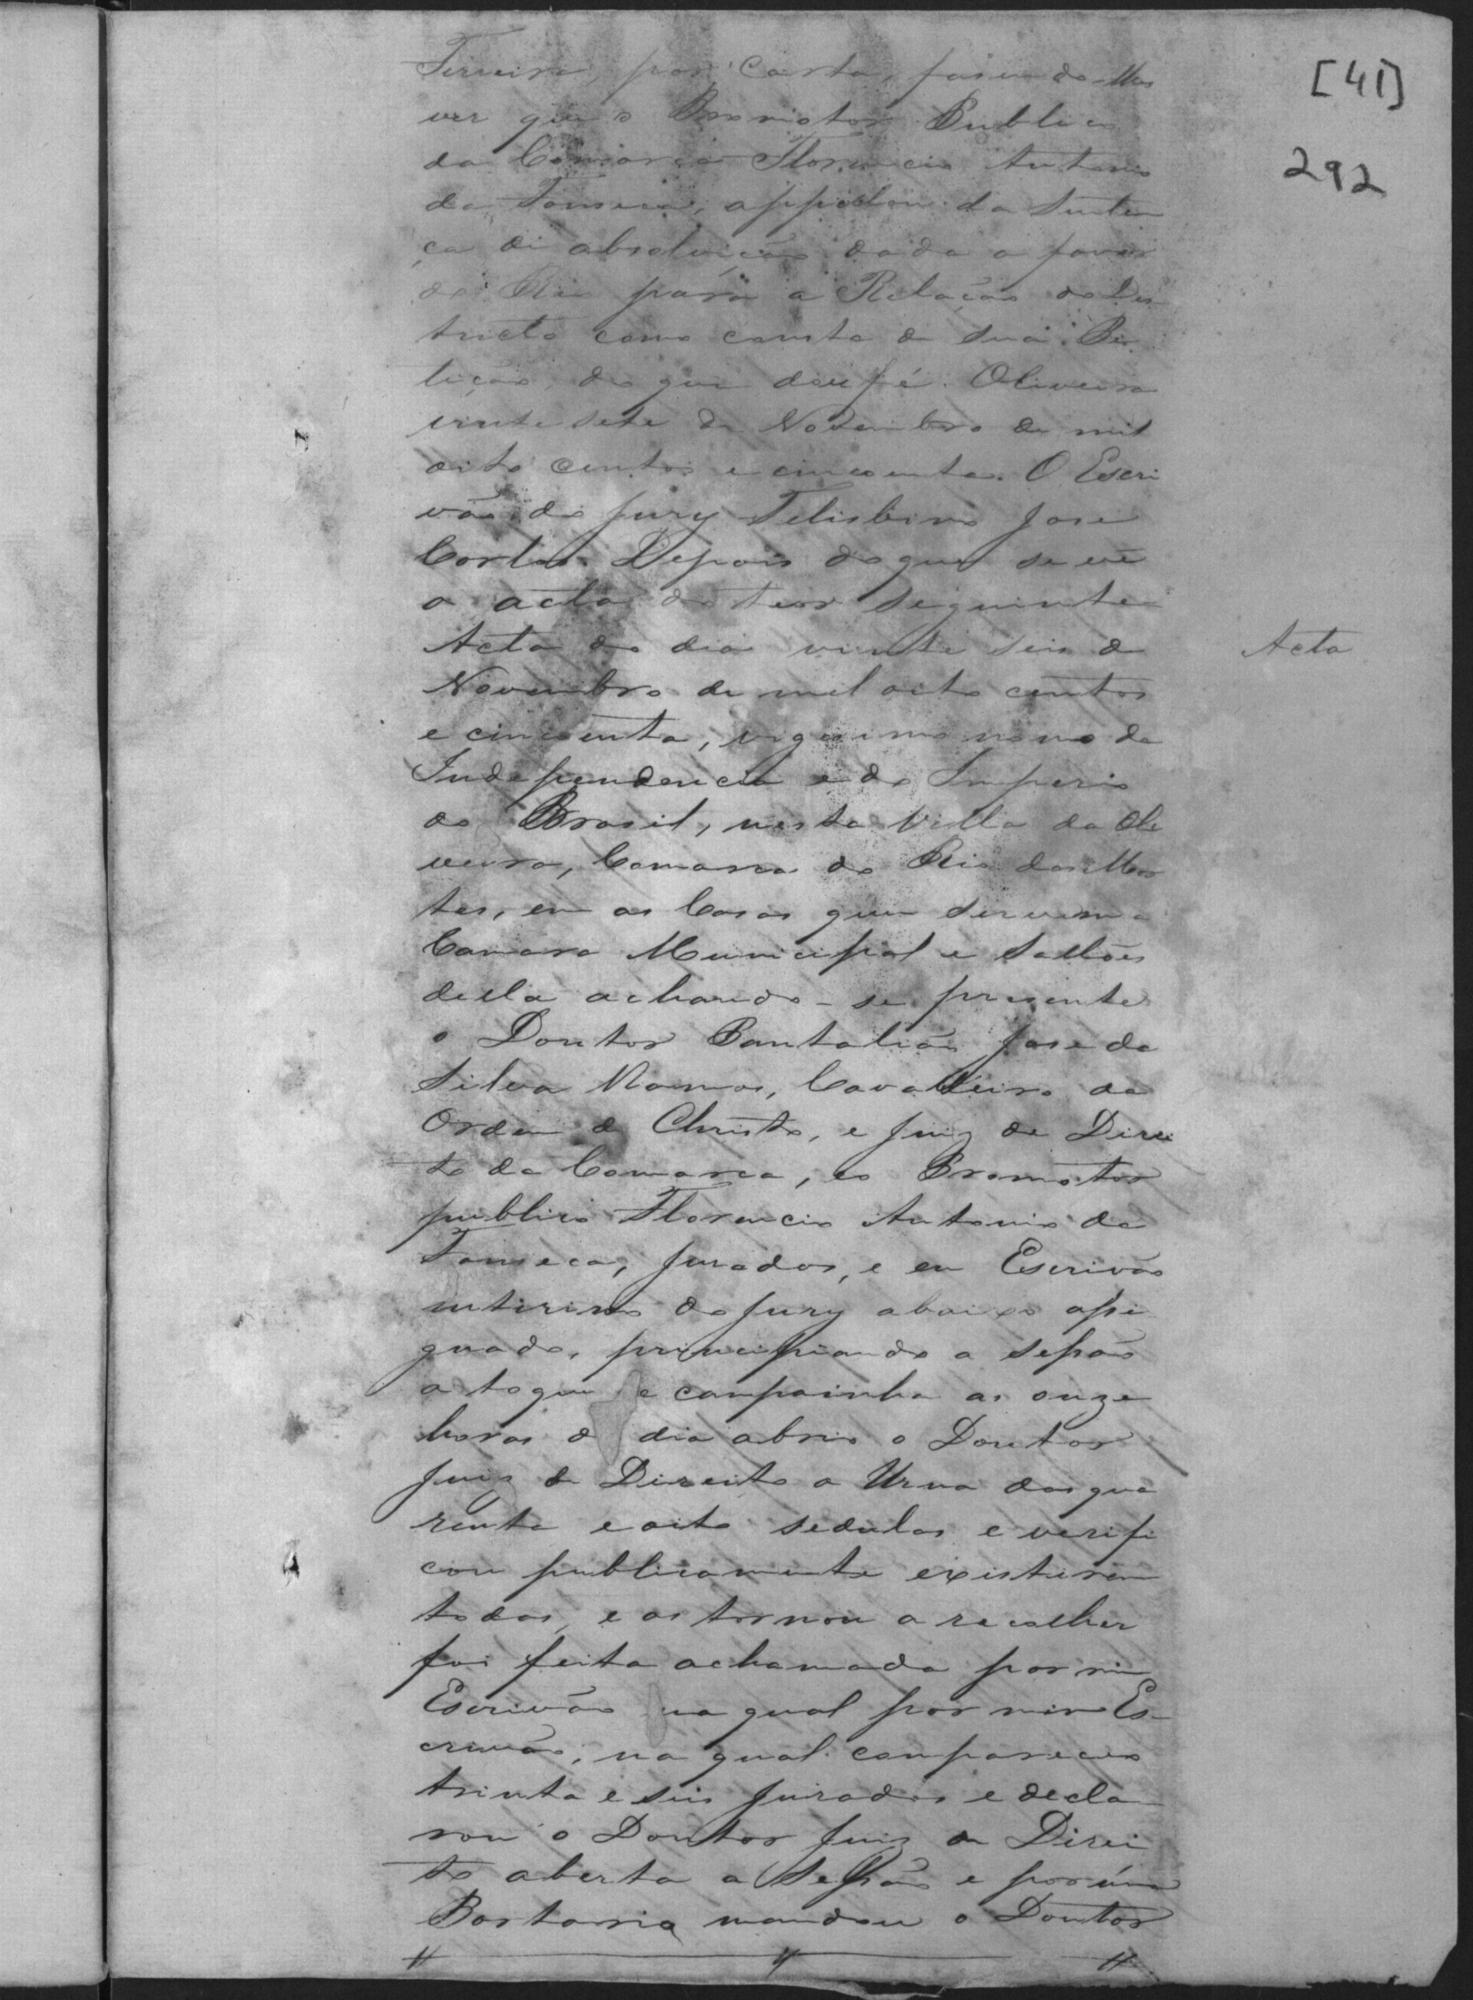 [41]
292
Ferreira, por Carta, fasendo-lhes
ver que o Promotor Publico
da Comarca Florencio Antonio
da Fonseca, appellou da Senten
ça de absolvição dada a favor
do Reo para a Relação do Des
tricto como consta de sua Pe
tição, do que dou fé. Oliveira
vinte sete de Novembro de mil
oito centos e cincoenta. O Escri
vão do Jury Felisbino José
Cortes. Depois do que se vê
a acta do teor seguinte
Acta
Acta do dia vinte seis de
Novembro de mil oito centos
e cincoenta, vigesimo nono da
Independencia e do Imperio
do Brasil, nesta Villa da Oli
veira, Comarca do Rio das Mor
tes, em as Casas que servem a
Camara Municipal e Sallões
della achando-se presente
o Doutor Pantalião José da
Silva Ramos, Cavalleiro da
Ordem de Christo, e Juiz de Direi
to da Comarca, eo Promotor
publico Florencio Antonio da
Fonseca, Jurados, e eu Escrivão
interino do Jury abaixo assi
gnado, principiando a Sessão
a toque e campainha as onze
horas d dia abrio o Doutor
Juiz de Direito a Urna das qua
renta e oito sedulas e verifi
cou publicamente existirem
todas, e as tornou a recolher
foi feita achamada por mim
Escrivão na qual por mim Es-
crivão, na qual compareceo
trinta e seis Jurados e decla
rou o Doutor Juiz de Direi
to aberta a Sessão e por úma
Portaria mandou o Doutor